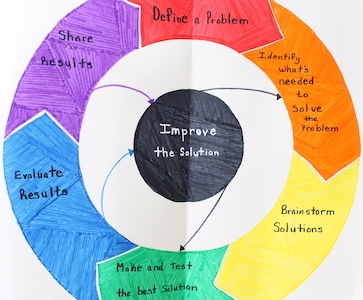 Define a Problem
Identify
what's
needed
to
Solve
the
Problem
Brainstorm
Solutions
Make and Test
the best Solution
Evaluate
Results
Share
Results
Improve
the Solution